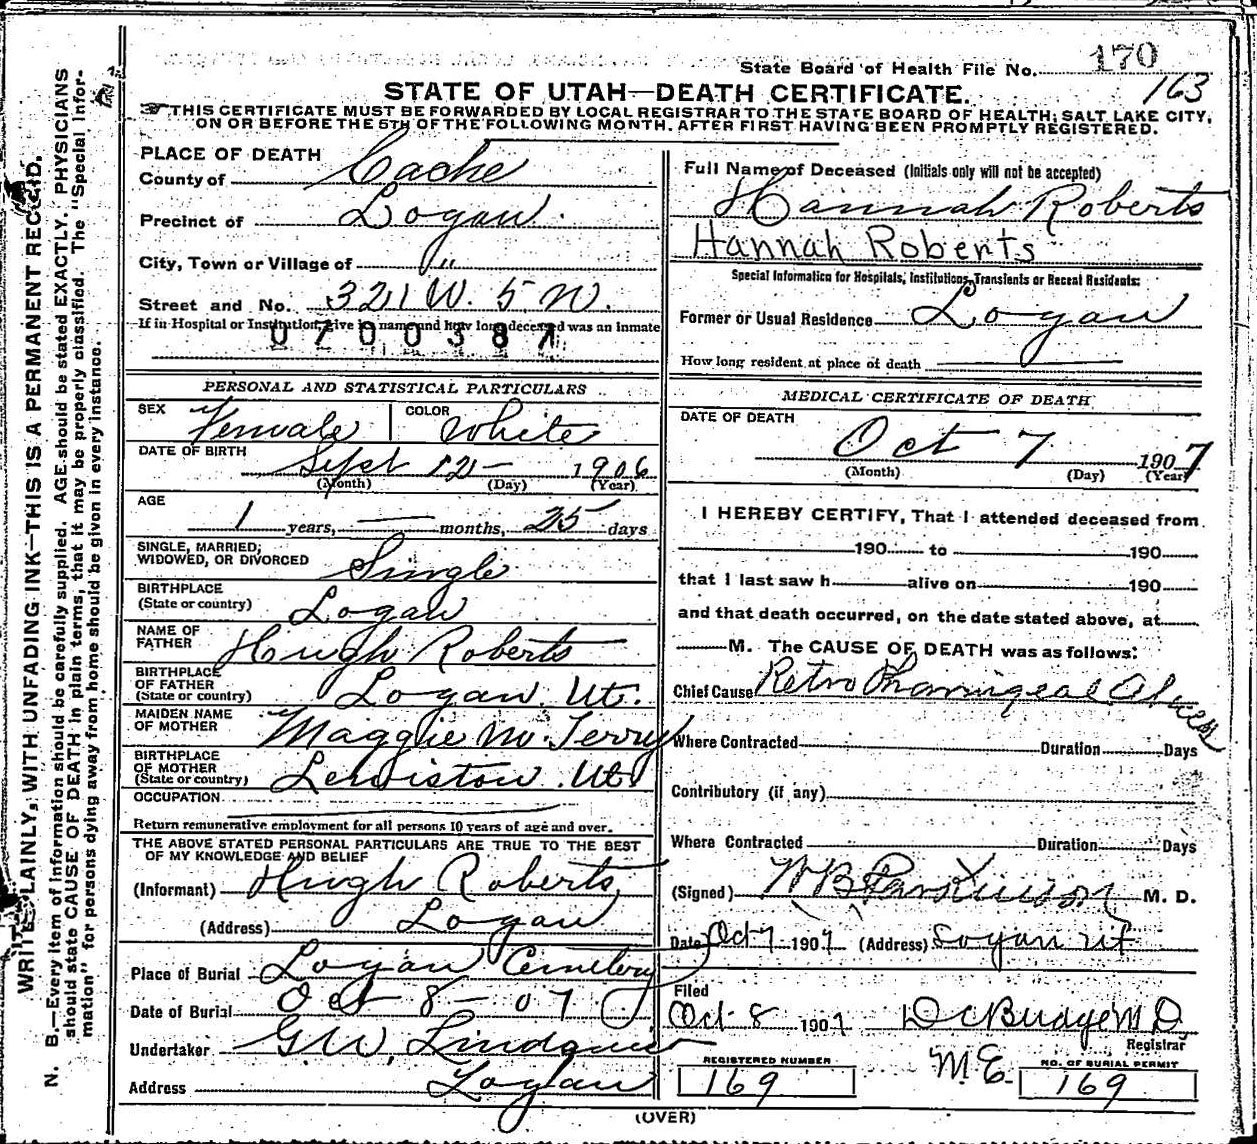 State Board of Health File No. 170
163
STATE OF UTAH—DEATH CERTIFICATE.
THIS CERTIFICATE MUST BE FORWARDED BY LOCAL REGISTRAR TO THE STATE BOARD OF HEALTH, SALT LAKE CITY,
ON OR BEFORE THE 5TH OF THE FOLLOWING MONTH. AFTER FIRST HAVING BEEN PROMPTLY REGISTERED.
WRITE PLAINLY, WITH UNFADING INK—THIS IS A PERMANENT RECORD.
N. B.—Every item of information should be carefully supplied. AGE should be stated EXACTLY. PHYSICIANS
should state CAUSE OF DEATH in plain terms, that it may be properly classified. The "Special Infor-
mation" for persons dying away from home should be given in every instance.
PLACE OF DEATH
County of Cache
Precinct of Logan.
City, Town or Village of "
Street and No. 321 W. 5 N.
If in Hospital or Institution, give its name and how long deceased was an inmate
0700387
PERSONAL AND STATISTICAL PARTICULARS
SEX Female COLOR White
DATE OF BIRTH Sept 12 1906
(Month) (Day) (Year)
AGE
1 years, — months, 25 days
SINGLE, MARRIED,
WIDOWED, OR DIVORCED Single
BIRTHPLACE
(State or country) Logan
NAME OF
FATHER Hugh Roberts
BIRTHPLACE
OF FATHER
(State or country) Logan Ut.
MAIDEN NAME
OF MOTHER Maggie M. Terry
BIRTHPLACE
OF MOTHER
(State or country) Lewiston Ut.
OCCUPATION
Return remunerative employment for all persons 10 years of age and over.
THE ABOVE STATED PERSONAL PARTICULARS ARE TRUE TO THE BEST
OF MY KNOWLEDGE AND BELIEF
(Informant) Hugh Roberts
(Address) Logan
Place of Burial Logan Cemetery
Date of Burial Oct 8 - 07
Undertaker G W. Lindquist
Address Logan
Full Name of Deceased (Initials only will not be accepted)
Hannah Roberts
Hannah Roberts
Special Information for Hospitals, Institutions, Transients or Recent Residents:
Former or Usual Residence Logan
How long resident at place of death
MEDICAL CERTIFICATE OF DEATH
DATE OF DEATH
Oct 7 1907
(Month) (Day) (Year)
I HEREBY CERTIFY, That I attended deceased from
190 to 190
that I last saw h alive on 190
and that death occurred, on the date stated above, at
M. The CAUSE OF DEATH was as follows:
Chief Cause Retro Pharringeal Abscess
Where Contracted Duration Days
Contributory (if any)
Where Contracted Duration Days
(Signed) W B Parkinson M. D.
Date Oct 7 1907 (Address) Logan Ut
Filed
Oct 8 1907 D C Budge M D
Registrar
REGISTERED NUMBER
169
M.E.
NO. OF BURIAL PERMIT
169
(OVER)